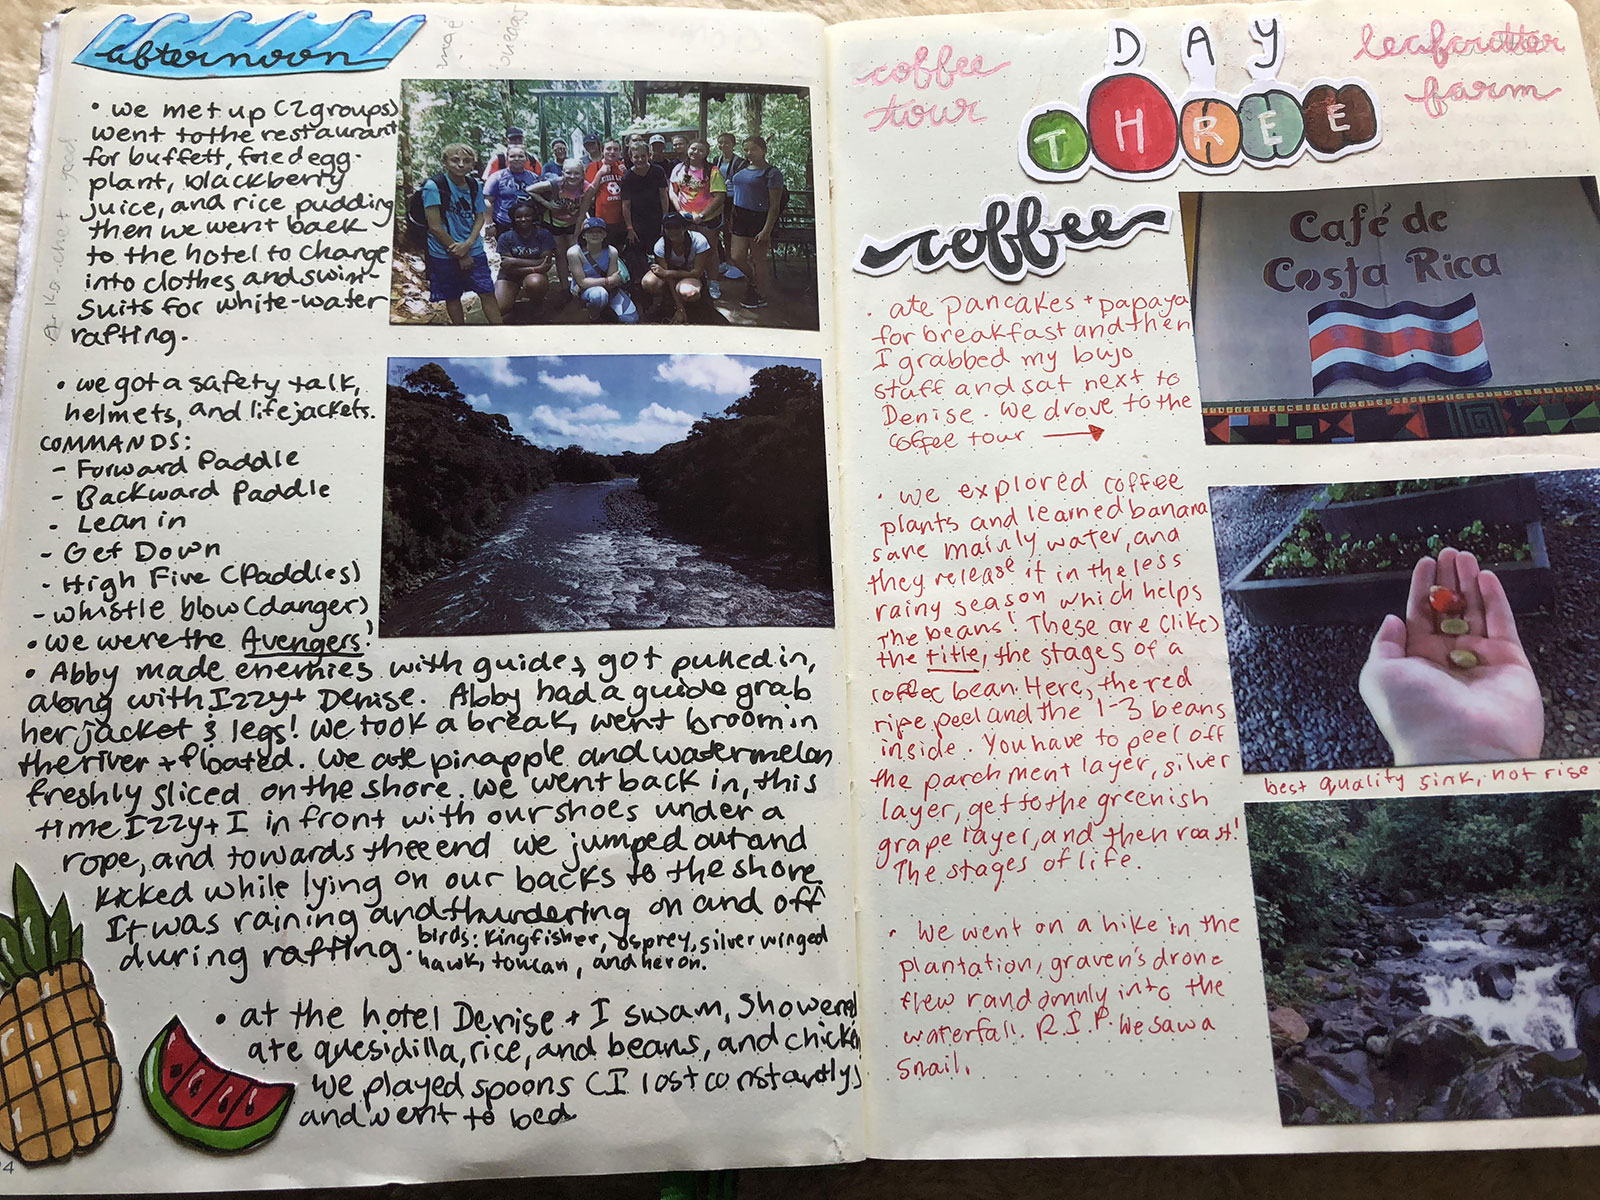 afternoon
• we met up (2 groups)
went to the restaurant
for buffett, fried egg-
plant, blackberry
juice, and rice pudding
then we went back
to the hotel to change
into clothes and swim-
suits for white-water
rafting.
• we got a safety talk,
helmets, and lifejackets.
COMMANDS:
- Forward Paddle
- Backward Paddle
- Lean in
- Get Down
- High Five (Paddles)
- whistle blow (danger)
• we were the Avengers!
• Abby made enemies with guides, got pulled in,
along with Izzy + Denise. Abby had a guide grab
her jacket & legs! We took a break, went broom in
the river + floated. We ate pineapple and watermelon
freshly sliced on the shore. We went back in, this
time Izzy + I in front with our shoes under a
rope, and towards thee end we jumped out and
kicked while lying on our backs to the shore.
It was raining and thundering on and off
during rafting. birds: Kingfisher, osprey, silver winged
hawk, toucan, and heron.
• at the hotel Denise + I swam, showered
ate quesidilla, rice, and beans, and chicken
We played spoons (I lost constantly)
and went to bed
coffee
tour
DAY
THREE
leafcutter
farm
coffee
• ate pancakes + papaya
for breakfast and then
I grabbed my bujo
staff and sat next to
Denise. We drove to the
coffee tour →
• we explored coffee
plants and learned banana
save mainly water, and
they release it in the less
rainy season which helps
the beans! These are (like)
the title, the stages of a
coffee bean. Here, the red
ripe peel and the 1-3 beans
inside. You have to peel off
the parchment layer, silver
layer, get to the greenish
grape layer, and then roast!
The stages of life.
• We went on a hike in the
plantation, graven's drone
flew randomnly into the
waterfall. R.I.P. We saw a
snail.
Café de
Costa Rica
best quality sink, not rise